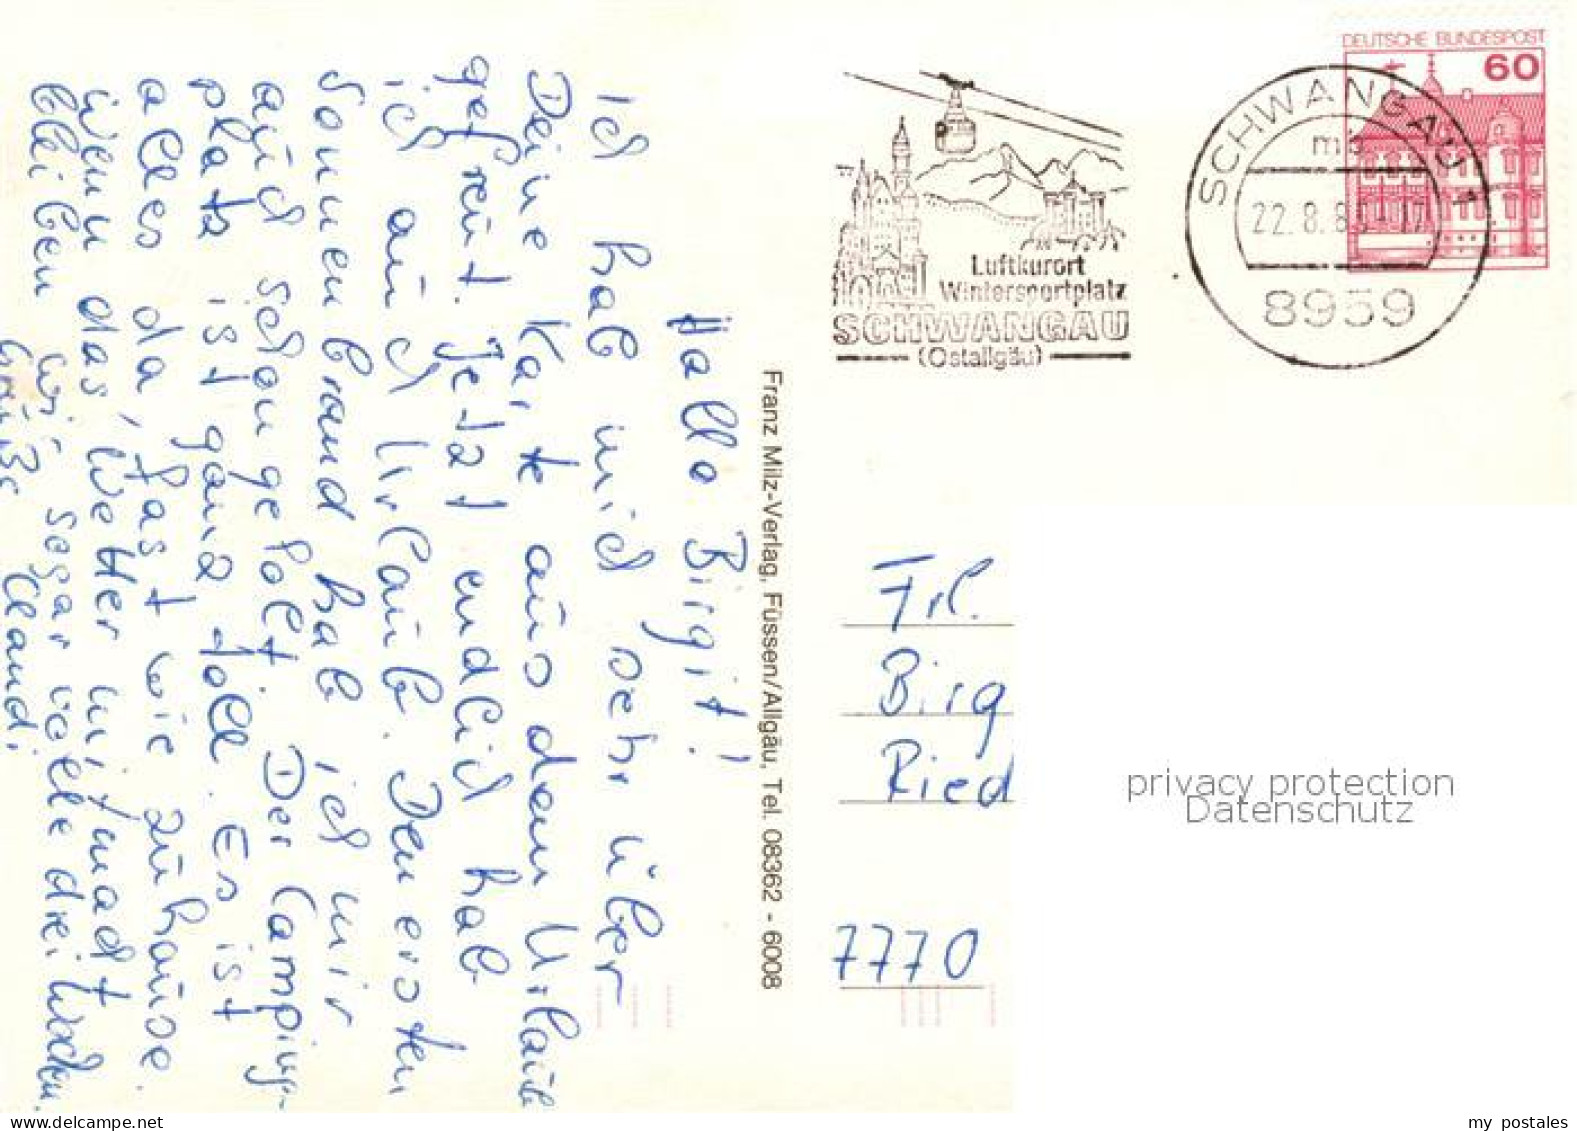 Hallo Birgit!
Ich hab mich sehr über
Deine Karte aus dem Urlaub
gefreut. Jetzt endlich hab
ich auch Urlaub. Den ersten
Sonnenbrand hab ich mir
auch schon geholt. Der Camping-
platz ist ganz toll. Es ist
alles da, fast wie zuhause.
Wenn das Wetter mitmacht
bleiben wir sogar volle drei Wochen.
Grüße Claudi
Franz Milz-Verlag, Füssen/Allgäu, Tel. 08362 - 6008
Luftkurort
Wintersportplatz
SCHWANGAU
(Ostallgäu)
SCHWANGAU 1
22.8.8 -17
8959
DEUTSCHE BUNDESPOST
60
Frl.
Birg
Ried
7770
privacy protection
Datenschutz
my postales